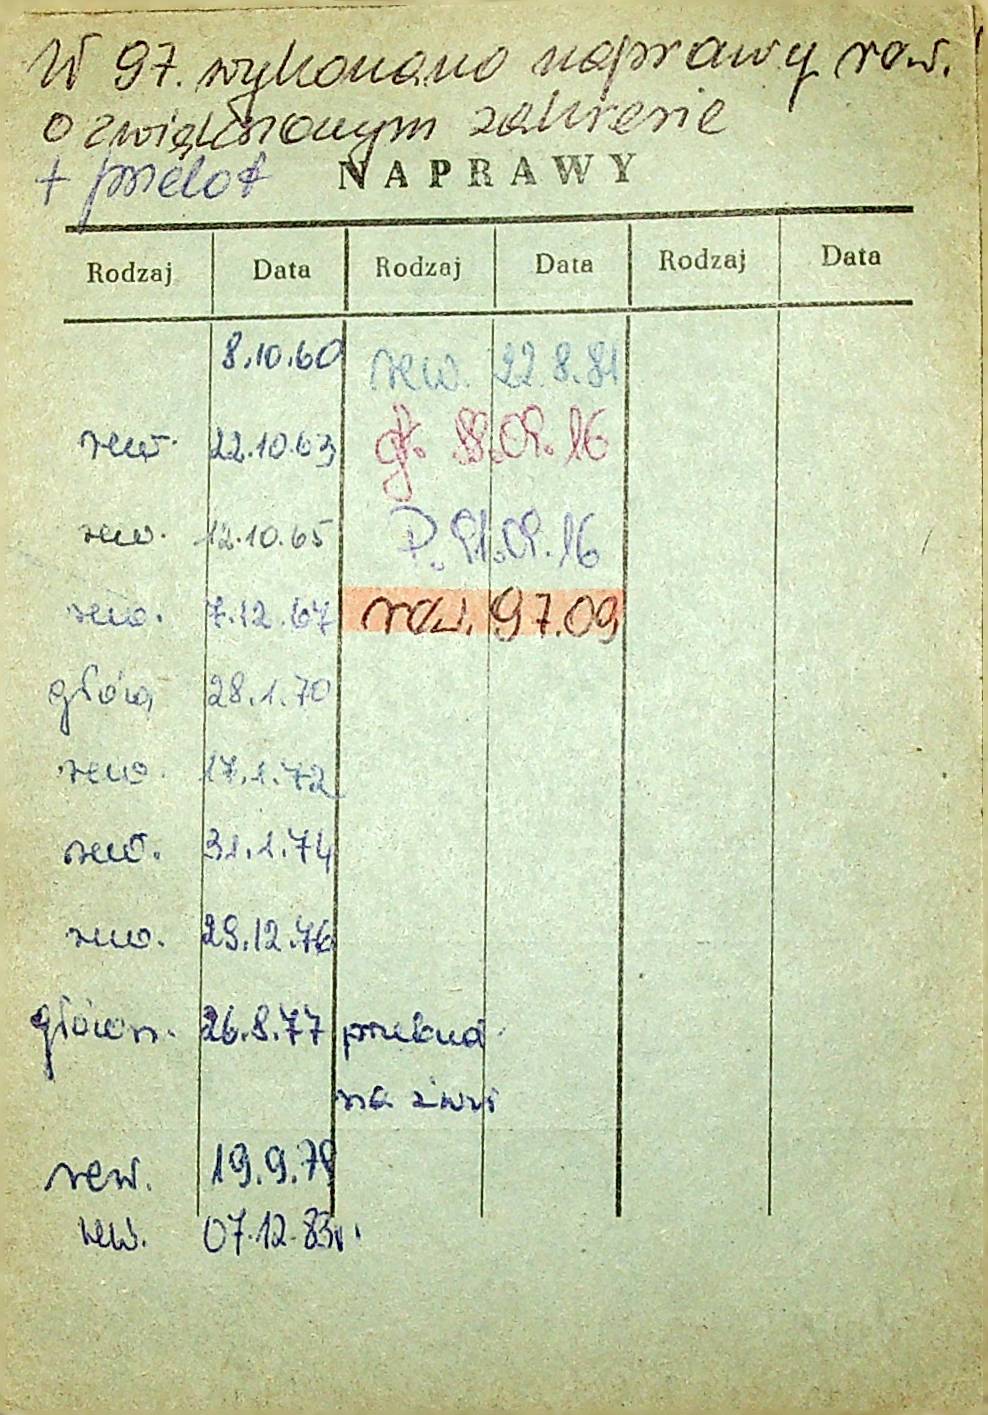 W 97. wykonano naprawy rew.
o zwiększonym zakresie
+ przelot
NAPRAWY
Rodzaj Data Rodzaj Data Rodzaj Data
8.10.60 rew. 22.8.81
rew. 22.10.63 gł. 88.09.16
rew. 12.10.65 P. 91.09.16
rew. 7.12.67 rew. 97.09
główn 28.1.70
rew. 17.1.72
rew. 31.1.74
rew. 29.12.76
główn. 26.8.77 przebud
na
rew. 19.9.79
rew. 07.12.83r.